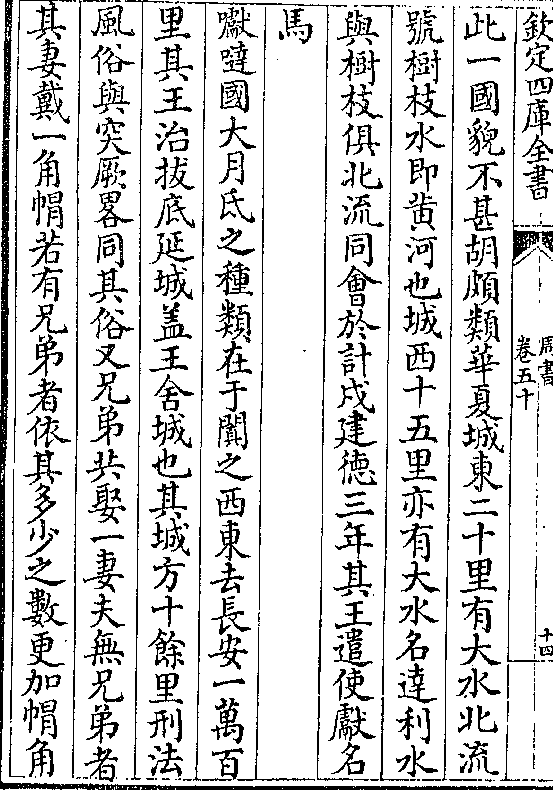 欽定四庫全書
周書
卷五十
十四
此一國貌不甚胡頗類華夏城東二十里有大水北流
號樹枝水即黃河也城西十五里亦有大水名達利水
與樹枝俱北流同會於計戍建德三年其王遣使獻名
馬
囐噠國大月氏之種類在于闐之西東去長安一萬百
里其王治拔底延城盖王舍城也其城方十餘里刑法
風俗與突厥畧同其俗又兄弟共娶一妻夫無兄弟者
其妻戴一角帽若有兄弟者依其多少之數更加帽角